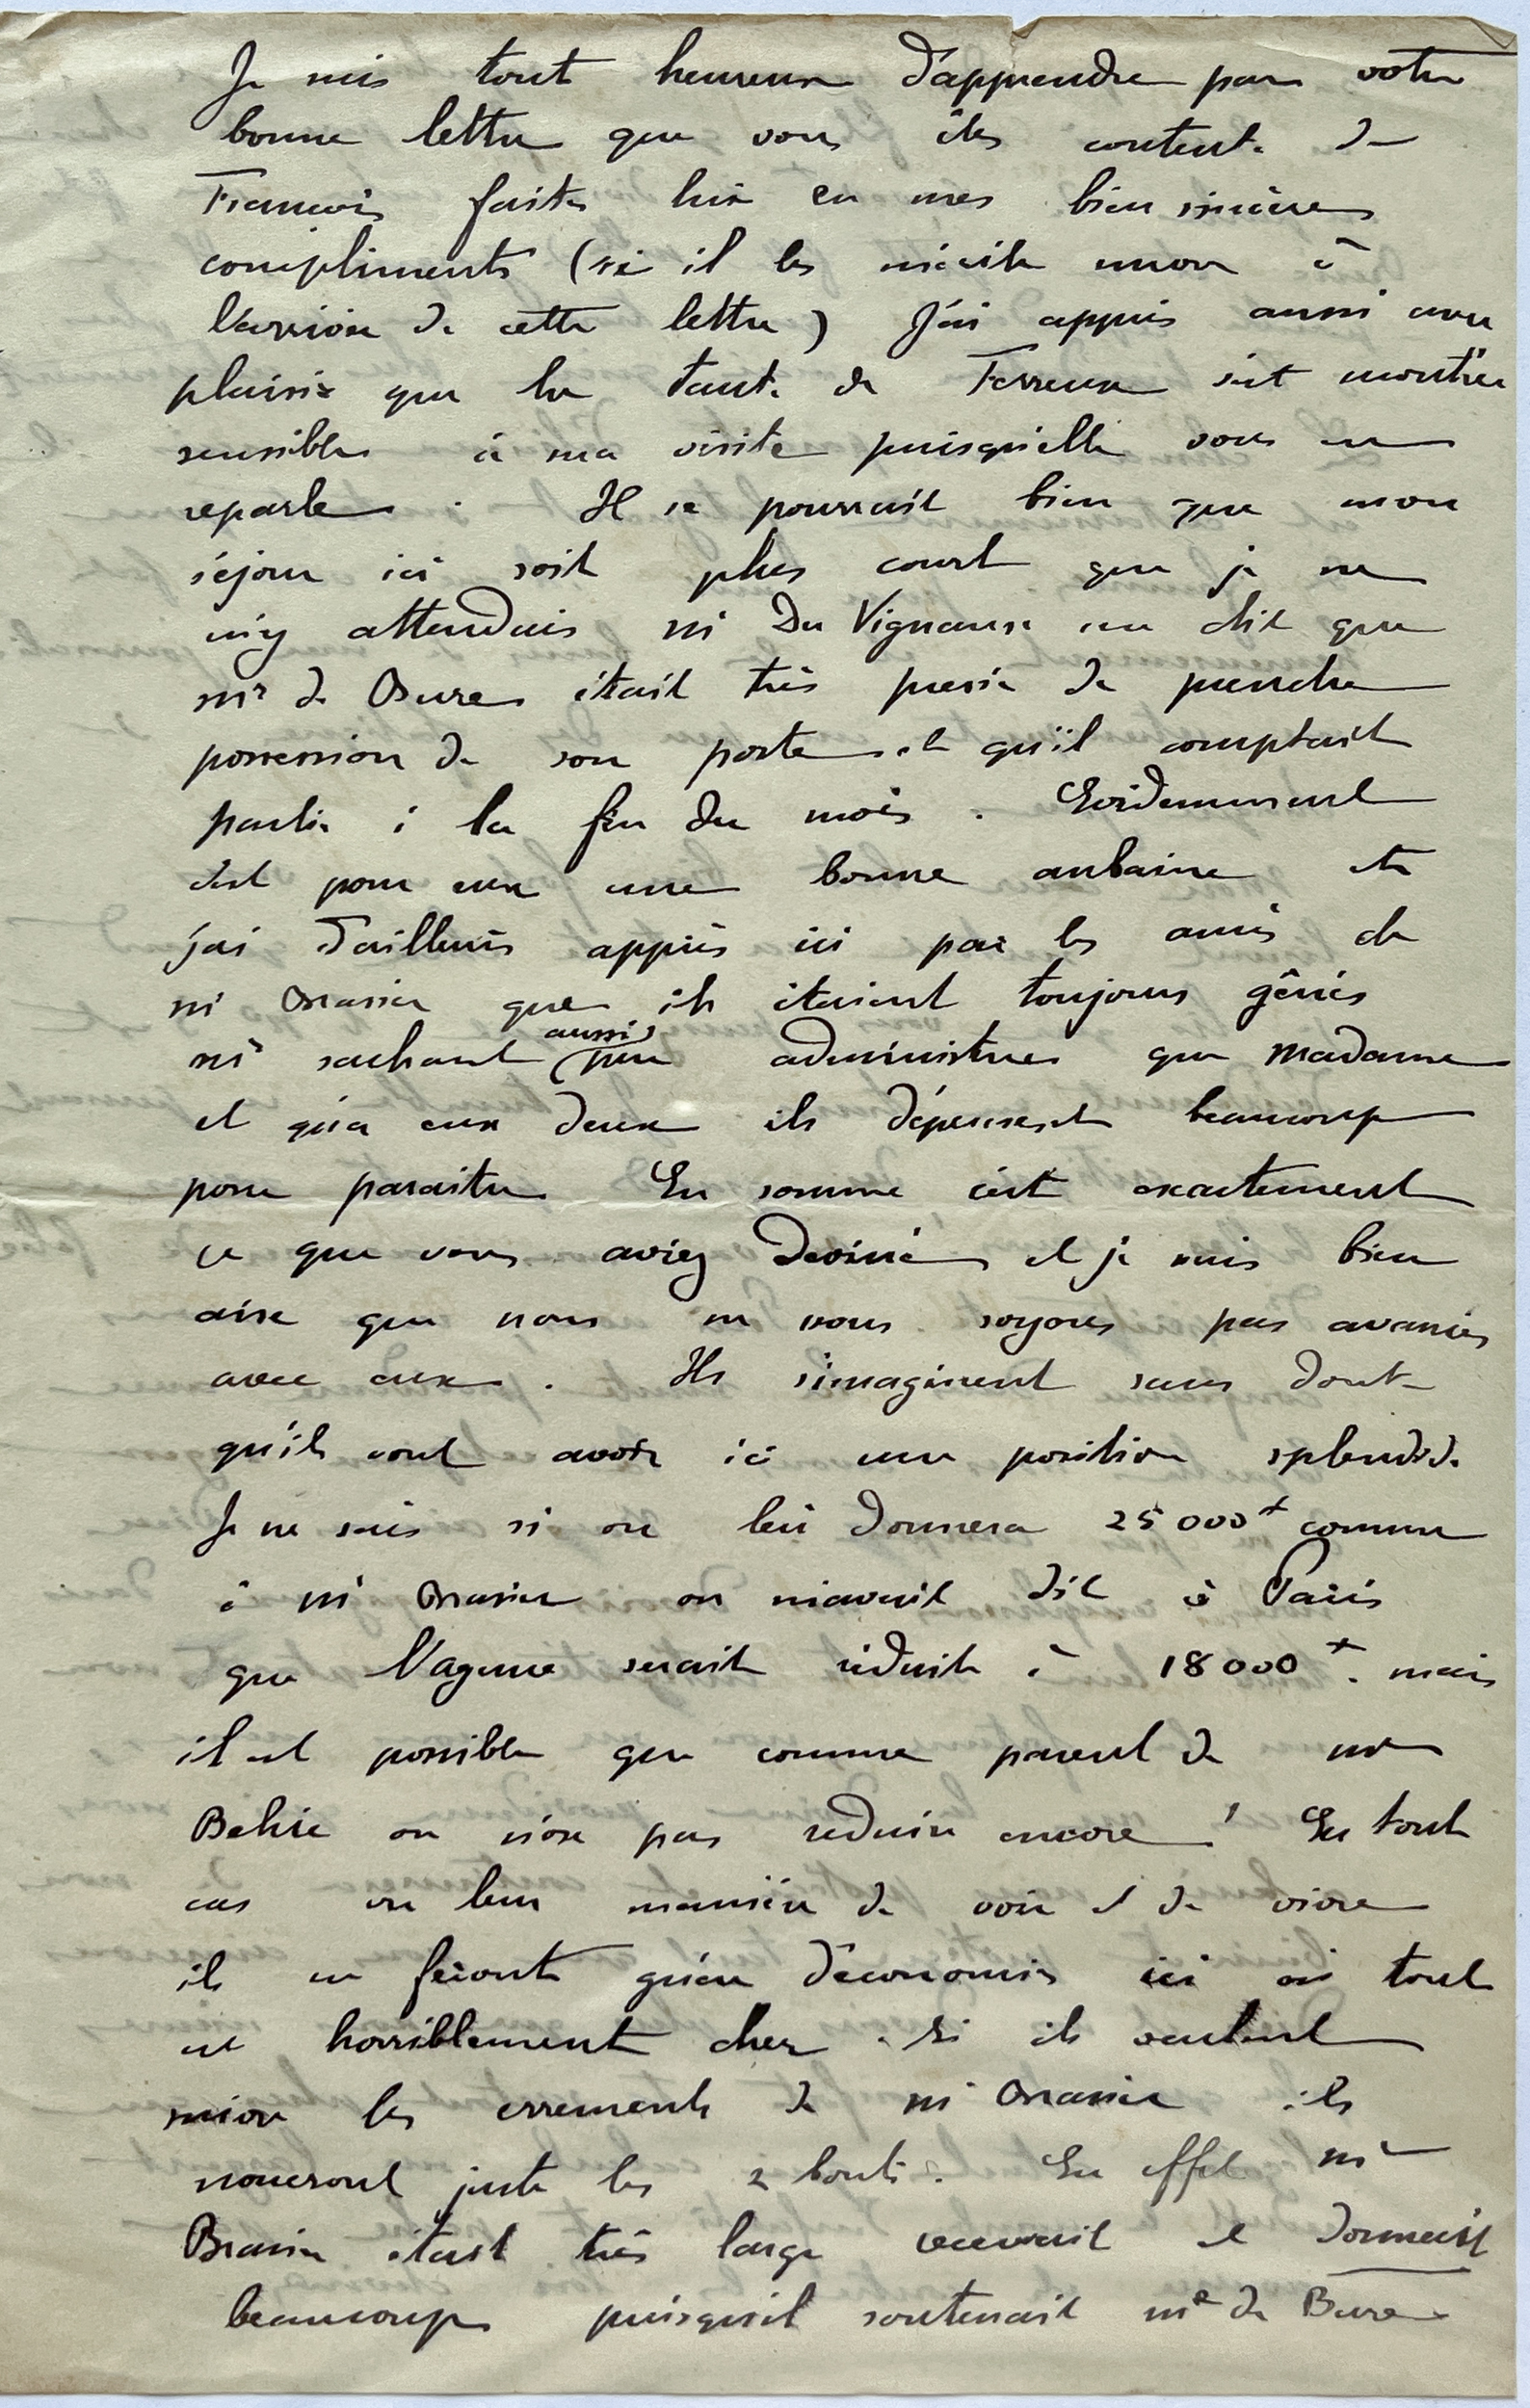 Je suis tout heureux d'apprendre par votre
bonne lettre que vous êtes contente de
François faites lui en mes bien sincères
compliments (si il les mérite encore à
l'arrivée de cette lettre) J'ai appris aussi avec
plaisir que la tante de Ferreux s'est montrée
sensible à ma visite puisqu'elle vous en
reparle. Il se pourrait bien que mon
séjour ici soit plus court que je ne
m'y attendais Mr Du Vignaux me dit que
Mr de Bures était très pressé de prendre
possession de son poste et qu'il comptait
partir à la fin du mois. Evidemment
c'est pour eux une bonne aubaine et
j'ai d'ailleurs appris ici par les amis de
Mr Brasier que ils étaient toujours gênés
Mr sachant aussi peu administrer que Madame
et qu'à eux deux ils dépensent beaucoup
pour paraitre. En somme c'est exactement
ce que vous aviez deviné et je suis bien
aise que nous ne nous soyons pas avancés
avec eux. Ils s'imaginent sans doute
qu'ils vont avoir ici une position splendide.
Je ne sais si on lui donnera 25000 comme
à Mr Brasier on m'avait dit à Paris
que l'agence serait réduite à 18000. mais
il est possible que comme parent de Mr
Behic on n'ose pas réduire encore! En tout
cas vu leur manière de voir et de vivre
ils ne feront guère d'économies ici où tout
est horriblement cher. Si ils veulent
suivre les errements de Mr Brasier ils
noueront juste les 2 bouts. En effet Mr
Brasier était très large recevait et donnait
beaucoup puisqu'il soutenait Me de Bures